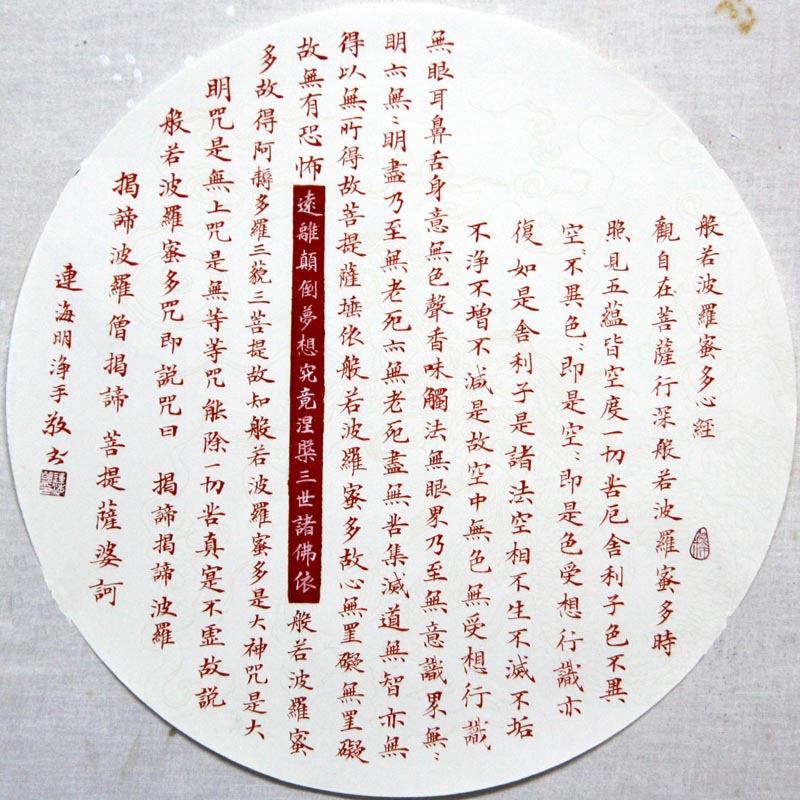 般若波羅蜜多心經
觀自在菩薩行深般若波羅蜜多時
照見五蘊皆空度一切苦厄舍利子色不異
空〻不異色〻即是空〻即是色受想行識亦
復如是舍利子是諸法空相不生不滅不垢
不淨不增不減是故空中無色無受想行識
無眼耳鼻舌身意無色聲香味觸法無眼界乃至無意識界無〻
明亦無〻明盡乃至無老死亦無老死盡無苦集滅道無智亦無
得以無所得故菩提薩埵依般若波羅蜜多故心無罣礙無罣礙
故無有恐怖遠離顛倒夢想究竟涅槃三世諸佛依般若波羅蜜
多故得阿耨多羅三藐三菩提故知般若波羅蜜多是大神咒是大
明咒是無上咒是無等等咒能除一切苦真寔不虛故說
般若波羅蜜多咒即說咒曰 揭諦揭諦 波羅
揭諦波羅僧揭諦 菩提薩婆訶
連海明淨手敬書